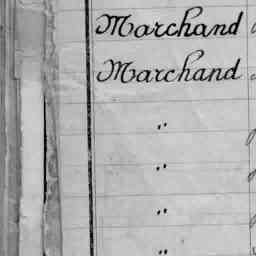 Marchand
Marchand
"
"
"
"